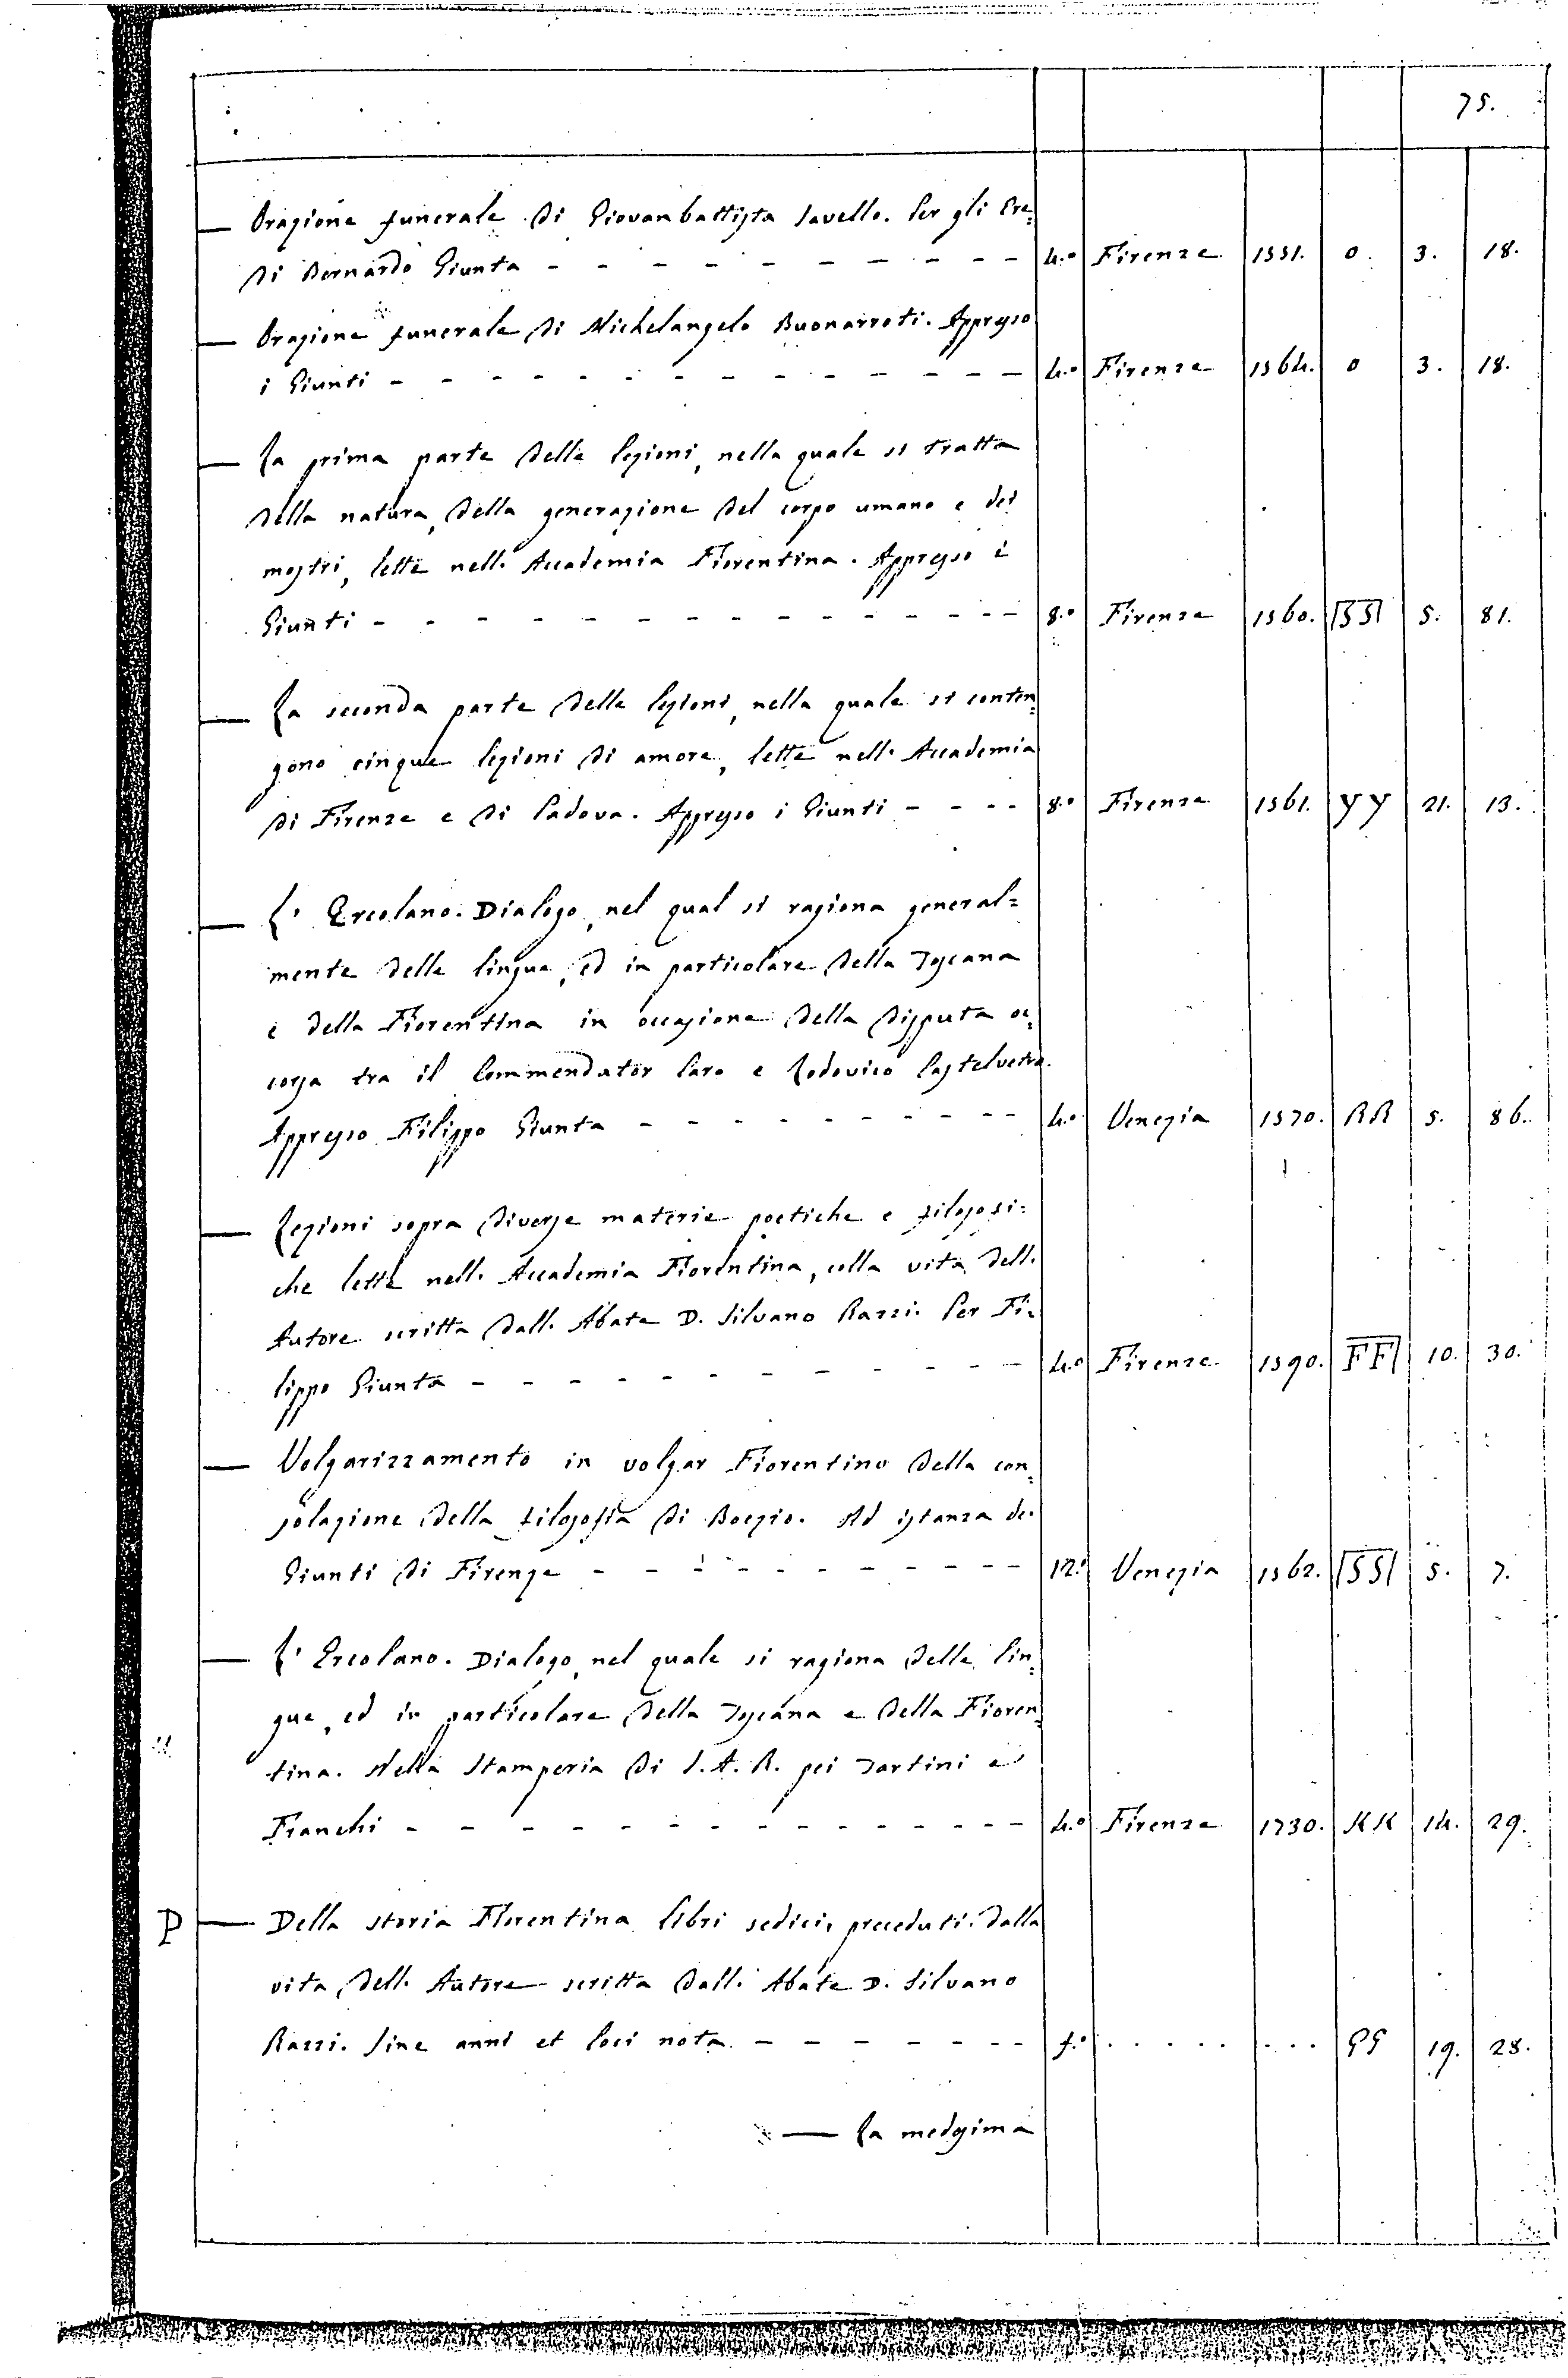 75.
— Orazione funerale di Giovambattista Savello. Per gli Ere=
di Bernardo Giunta - - - - - - - - - - 4.º Firenze 1551. O. 3. 18.
— Orazione funerale di Michelangelo Buonarroti. Appresso
i Giunti - - - - - - - - - - - - - 4.º Firenze 1564. O 3. 18.
— La prima parte delle lezioni, nella quale si tratta
della natura, della generazione del corpo umano e dei
mostri, lette nell' Accademia Fiorentina. Appresso i
Giunti - - - - - - - - - - - - - 8.º Firenze 1560. SS 5. 81.
— La seconda parte delle lezioni, nella quale si conten=
gono cinque lezioni di amore, lette nell' Accademia
di Firenze e di Padova. Appresso i Giunti - - - - 8.º Firenze 1561. YY 21. 13.
— L' Ercolano. Dialogo, nel qual si ragiona general=
mente delle lingue, ed in particolare della Toscana
e della Fiorentina in occasione della disputa oc=
corsa tra il Commendator Caro e Lodovico Castelvetro.
Appresso Filippo Giunta - - - - - - - - - 4.º Venezia 1570. RR 5. 86.
— Lezioni sopra diverse materie poetiche e filosofi=
che lette nell' Accademia Fiorentina, colla vita dell'
Autore scritta dall' Abate D. Silvano Razzi. Per Fi=
lippo Giunta - - - - - - - - - - - - 4.º Firenze 1590. FF 10. 30.
— Volgarizzamento in volgar Fiorentino della con=
solazione della filosofia di Boezio. Ad istanza de'
Giunti di Firenze - - - - - - - - - - 12.º Venezia 1562. SS 5. 7.
— L' Ercolano. Dialogo, nel quale si ragiona delle lin=
gue, ed in particolare della Toscana e della Fioren=
tina. Nella Stamperia di S. A. R. pei Tartini e
Franchi - - - - - - - - - - - - - 4.º Firenze 1730. KK 14. 29.
P — Della storia Fiorentina libri sedici, preceduti dalla
vita dell' Autore scritta dall' Abate D. Silvano
Razzi. Sine anni et loci nota - - - - - - - f.º . . . . . . . . GG 19. 28.
— La medesima